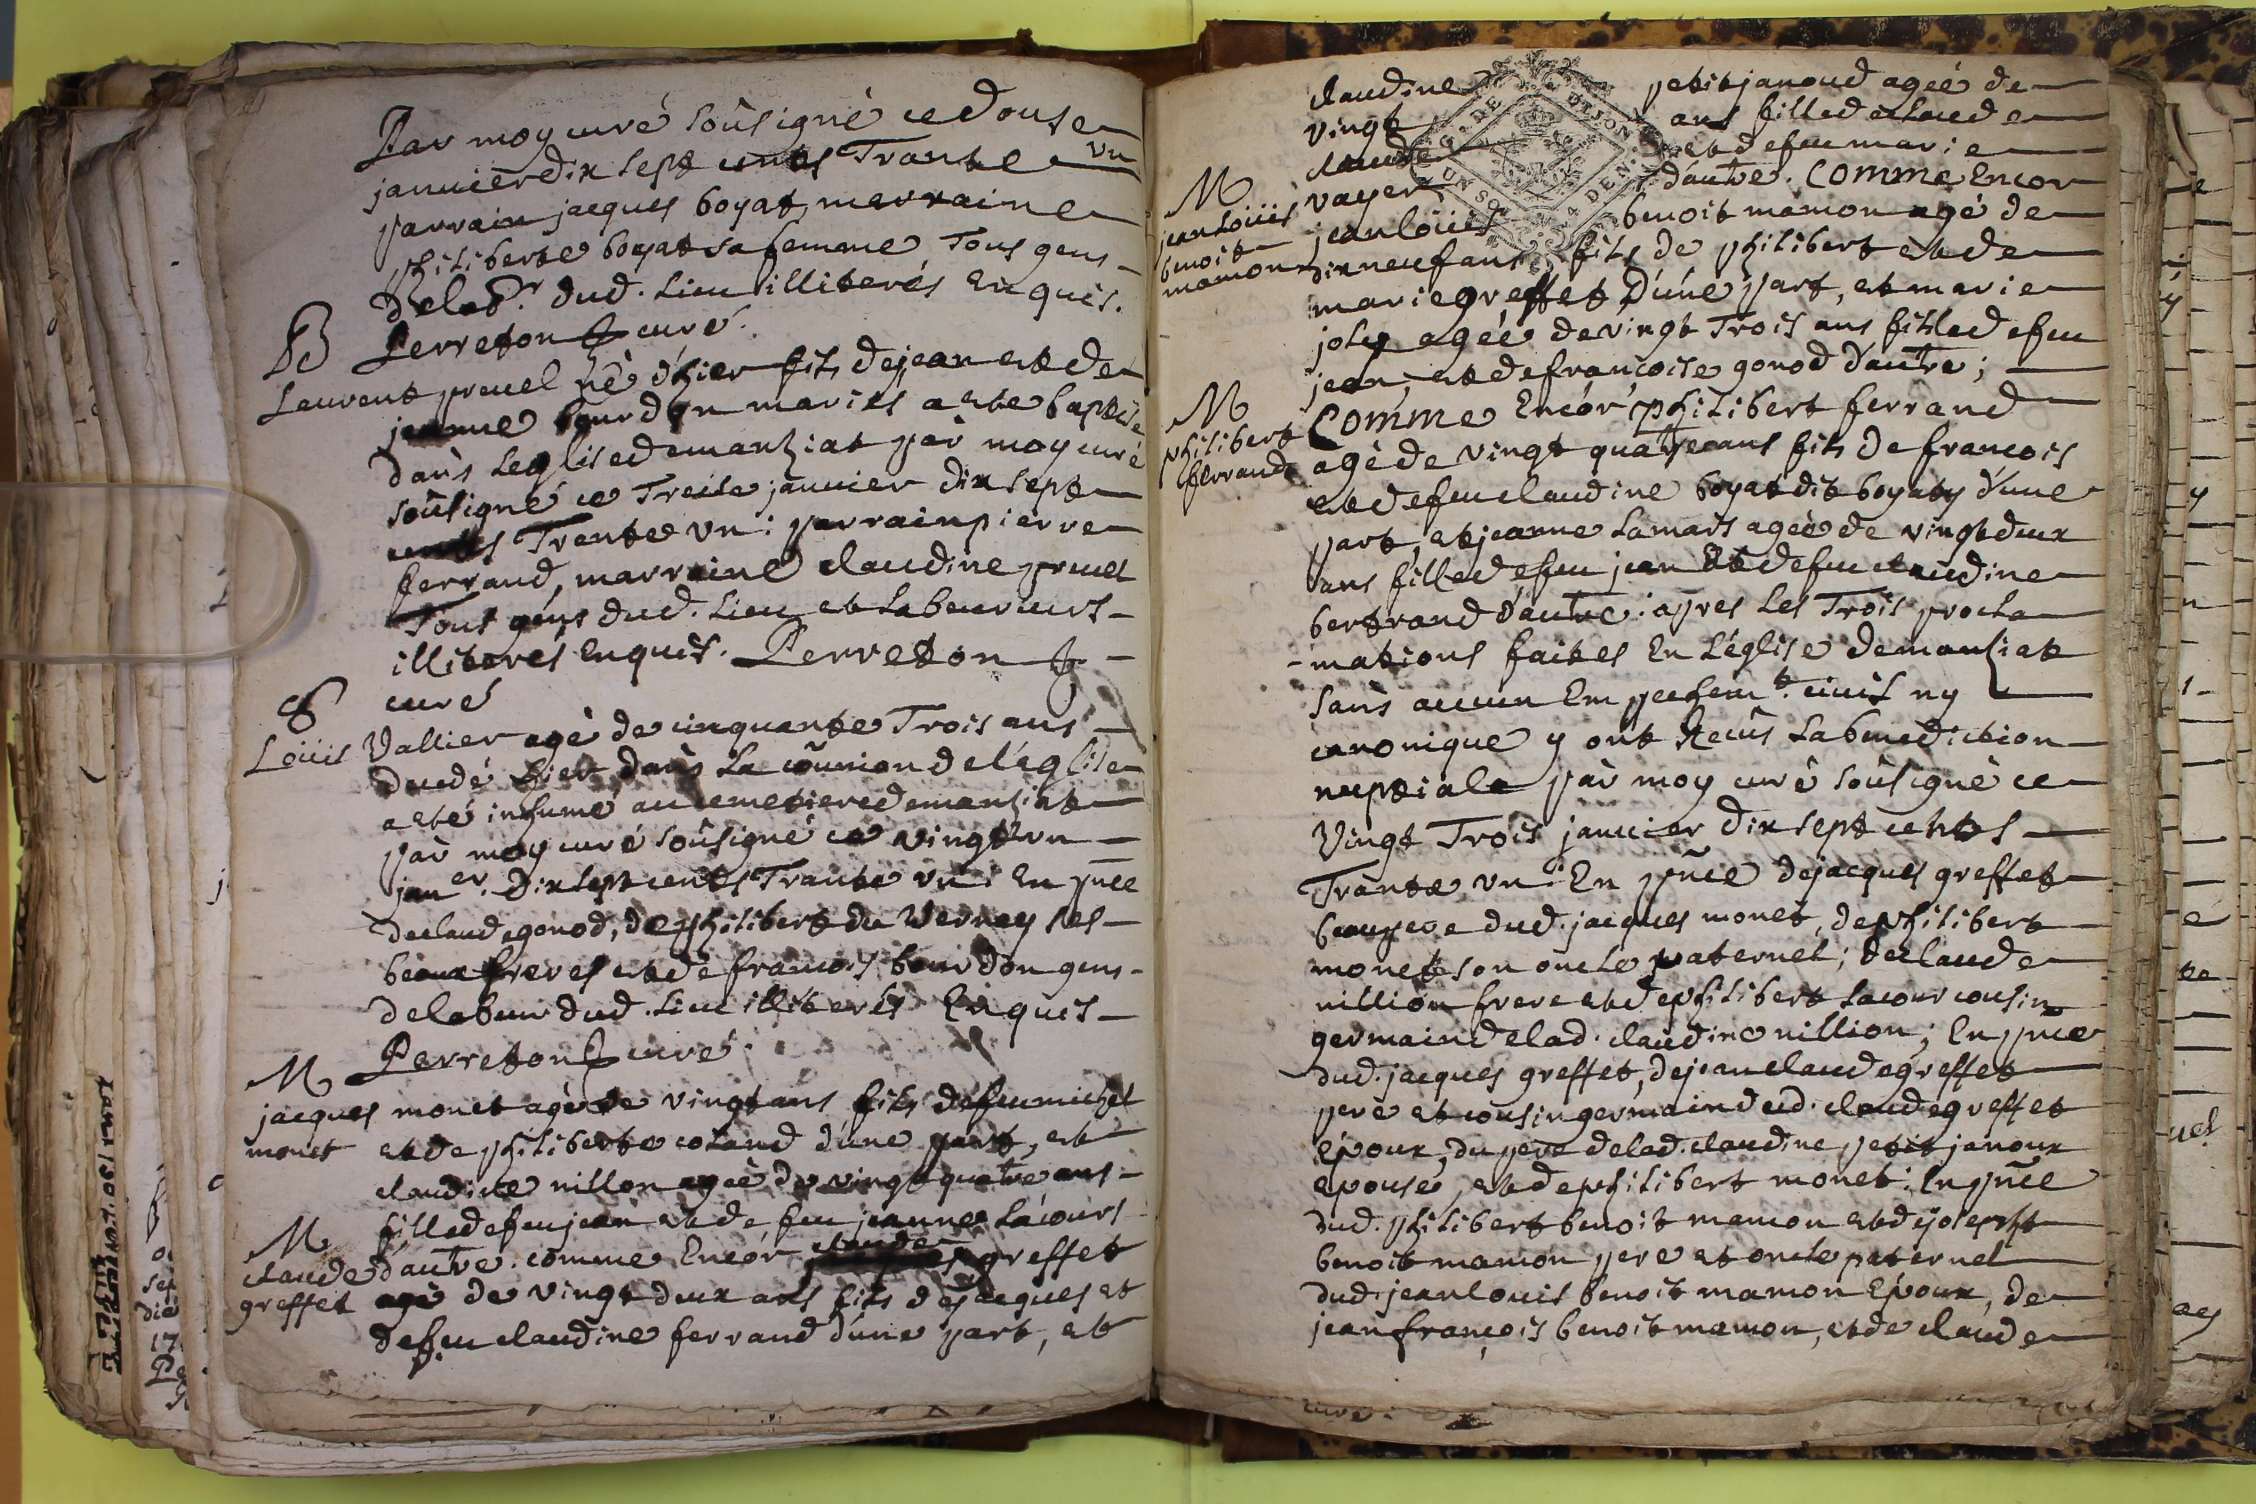 Par moy curé soûsigné ce douse
janvier dix sept cents Trante vn
parrain jacques boyat, marraine
philiberte boyat sa femme Tous gens
de lab.r dud. Lieu illiterés Enquis.
Perreton curé.
B
Laurent pruel né d'hier fils de jean et de
jeanne bourdon mariés a este baptisé
dans Leglise demanziat par moy curé
soûsigné ce Treise janvier dix sept
cents Trente vn: parrain pierre
ferrand, marraine claudine pruel
Tous gens dud. Lieu et Laboureurs
illiterés Enquis. Perreton
curé
S
Loüis Vallier agé de cinquante Trois ans
decedé hier dans La coûmion de l'églîse
a esté inhumé au cemetiere demanziat
par moy curé soûsigné ce vingt vn
jan.er Dix sept cents Trante vn: En pñce
de claude gonod, de philibert du Verney ses
beaux freres et de francois bourdon gens
de labeur dud. Lieu illiterés Enquis
Perreton curé.
M
jacques monet agé de vingt ans fils defeu michel
monet et de philiberte coland d'une part, et
claudine nillon agée de vingt quatre ans
fille defeu jean et de feu jeanne Lacours
M
claude d'autre. comme Encor claude greffet
greffet agé de vingt deux ans fils de jacques et
defeu claudine ferrand d'une part, et
claudine petit janoud ageé de
vingt ans fille de claude
claude et defeu marie
M
vayer d'autre. Comme Encor
jean loüis jean loüis benoit mamon agé de
benoit
mamon dix neuf ans fils de philibert et de
marie greffet, D'úne part, et marie
joly ageé de vingt Trois ans fille defeu
jean, et de françoise gonod d'autre;
M
philibert Comme Encor philibert ferrand
ferrand agé de vingt quatre ans fils de francois
et defeu claudine boyat dit boyaty d'une
part, et jeanne Lamars agée de vingt deux
ans fille defeu jean Et defeu claudine
bertrand d'autre: apres Les Trois procla
-mations faites En L'église demanziat
sans aucun Empechem.t civil ny
canonique y ont Recûs La benediction
nuptiale par moy curé soûsigné ce
Vingt Trois janvier dix sept cents
Trante vn: En pñce de jacques greffet
beaupere dud. jacques monet, de philibert
monet son oncle paternel; de claude
nillion frere et de philibert Lacour cousin
germain de lad. claudine nillion; En pñce
dud. jacques greffet, de jean claude greffet
pere et cousin germain dud. claude greffet
Epoux, du pere de lad. claudine petit janoux
epouse, et de philibert monet: En pñce
dud. philibert benoit mamon et de joseph
benoit mamon pere et oncle paternel
dud. jean louis benoit mamon Epoux, de
jean françois benoit mamon, et de claude